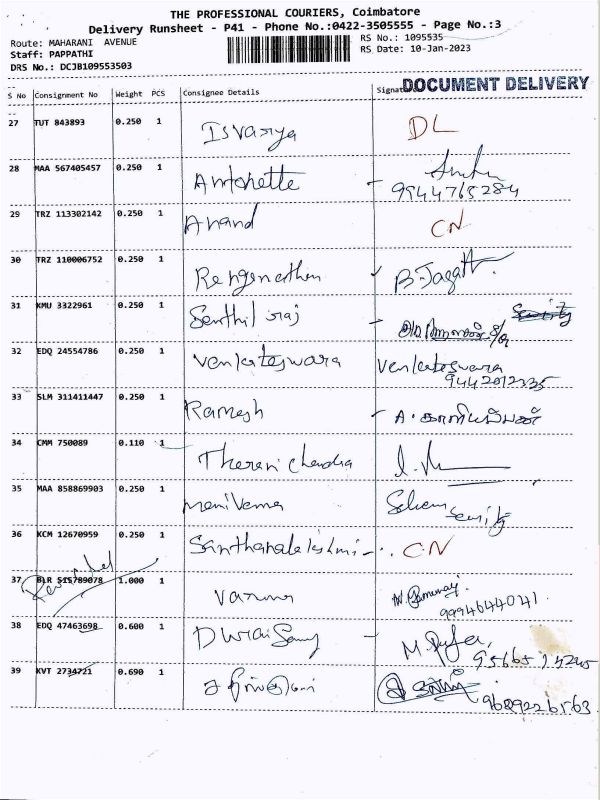 THE PROFESSIONAL COURIERS, Coimbatore
Delivery Runsheet - P41 - Phone No.:0422-3505555 - Page No.:3
Route: MAHARANI AVENUE RS No.: 1095535
Staff: PAPPATHI RS Date: 10-Jan-2023
DRS No.: DCJB109553503
DOCUMENT DELIVERY
S No Consignment No Weight PCS Consignee Details
27 TUT 843893 0.250 1 Isvarya DL
28 MAA 567405457 0.250 1 Antonette
9944765284
29 TRZ 113302142 0.250 1 Anand CN
30 TRZ 110006752 0.250 1 Rengenathan B.Jagatt
31 KMU 3322961 0.250 1 Senthil raj
32 EDQ 24554786 0.250 1 Venkateswara Venkateswara
9442012335
33 SLM 311411447 0.250 1 Ramesh
34 CMM 750089 0.110 1 Therani Chandra
35 MAA 858869903 0.250 1 maniVema
36 KCM 12670959 0.250 1 Santhanalakshmi CN
37 BLR 515789078 1.000 1
9994644041
38 EDQ 47463698 0.600 1 Dwrai Samy
39 KVT 2734721 0.690 1
9689226563